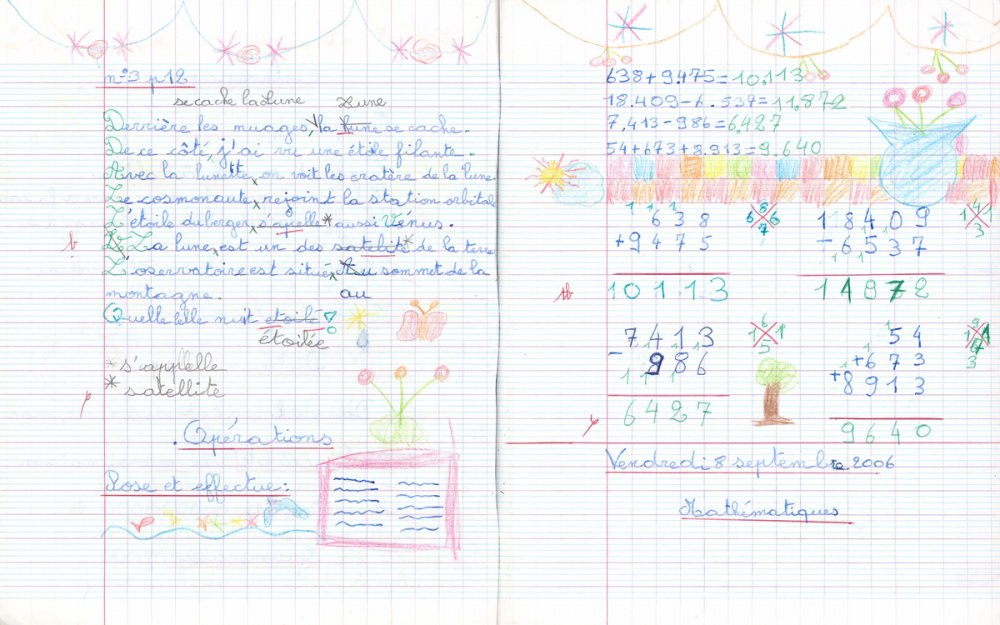 n°3 p 12
se cache la Lune Lune
Derrière les nuages, la lune se cache.
De ce côté, j'ai vu une étoile filante.
Avec la lunette on voit les cratère de la lune.
Le cosmonaute rejoint la station orbital
L'étoile du berger s'apelle* aussi Vénus.
b La lune, est un des satelits* de la terre
L'oservatoire est située Au sommet de la
montagne. au
Quelle belle nuit etoilé
étoilée
* s'appelle
* satellite
Opérations
Pose et effectue:
638+9.475=10.113
18.409-6.537=11.872
7.413-986=6.427
54+673+8.913=9.640
638 18409
+9475 -6537
tb 10113 11872
7413 54
-986 +673
+8913
6427 9640
Vendredi 8 septembre 2006
Mathématiques